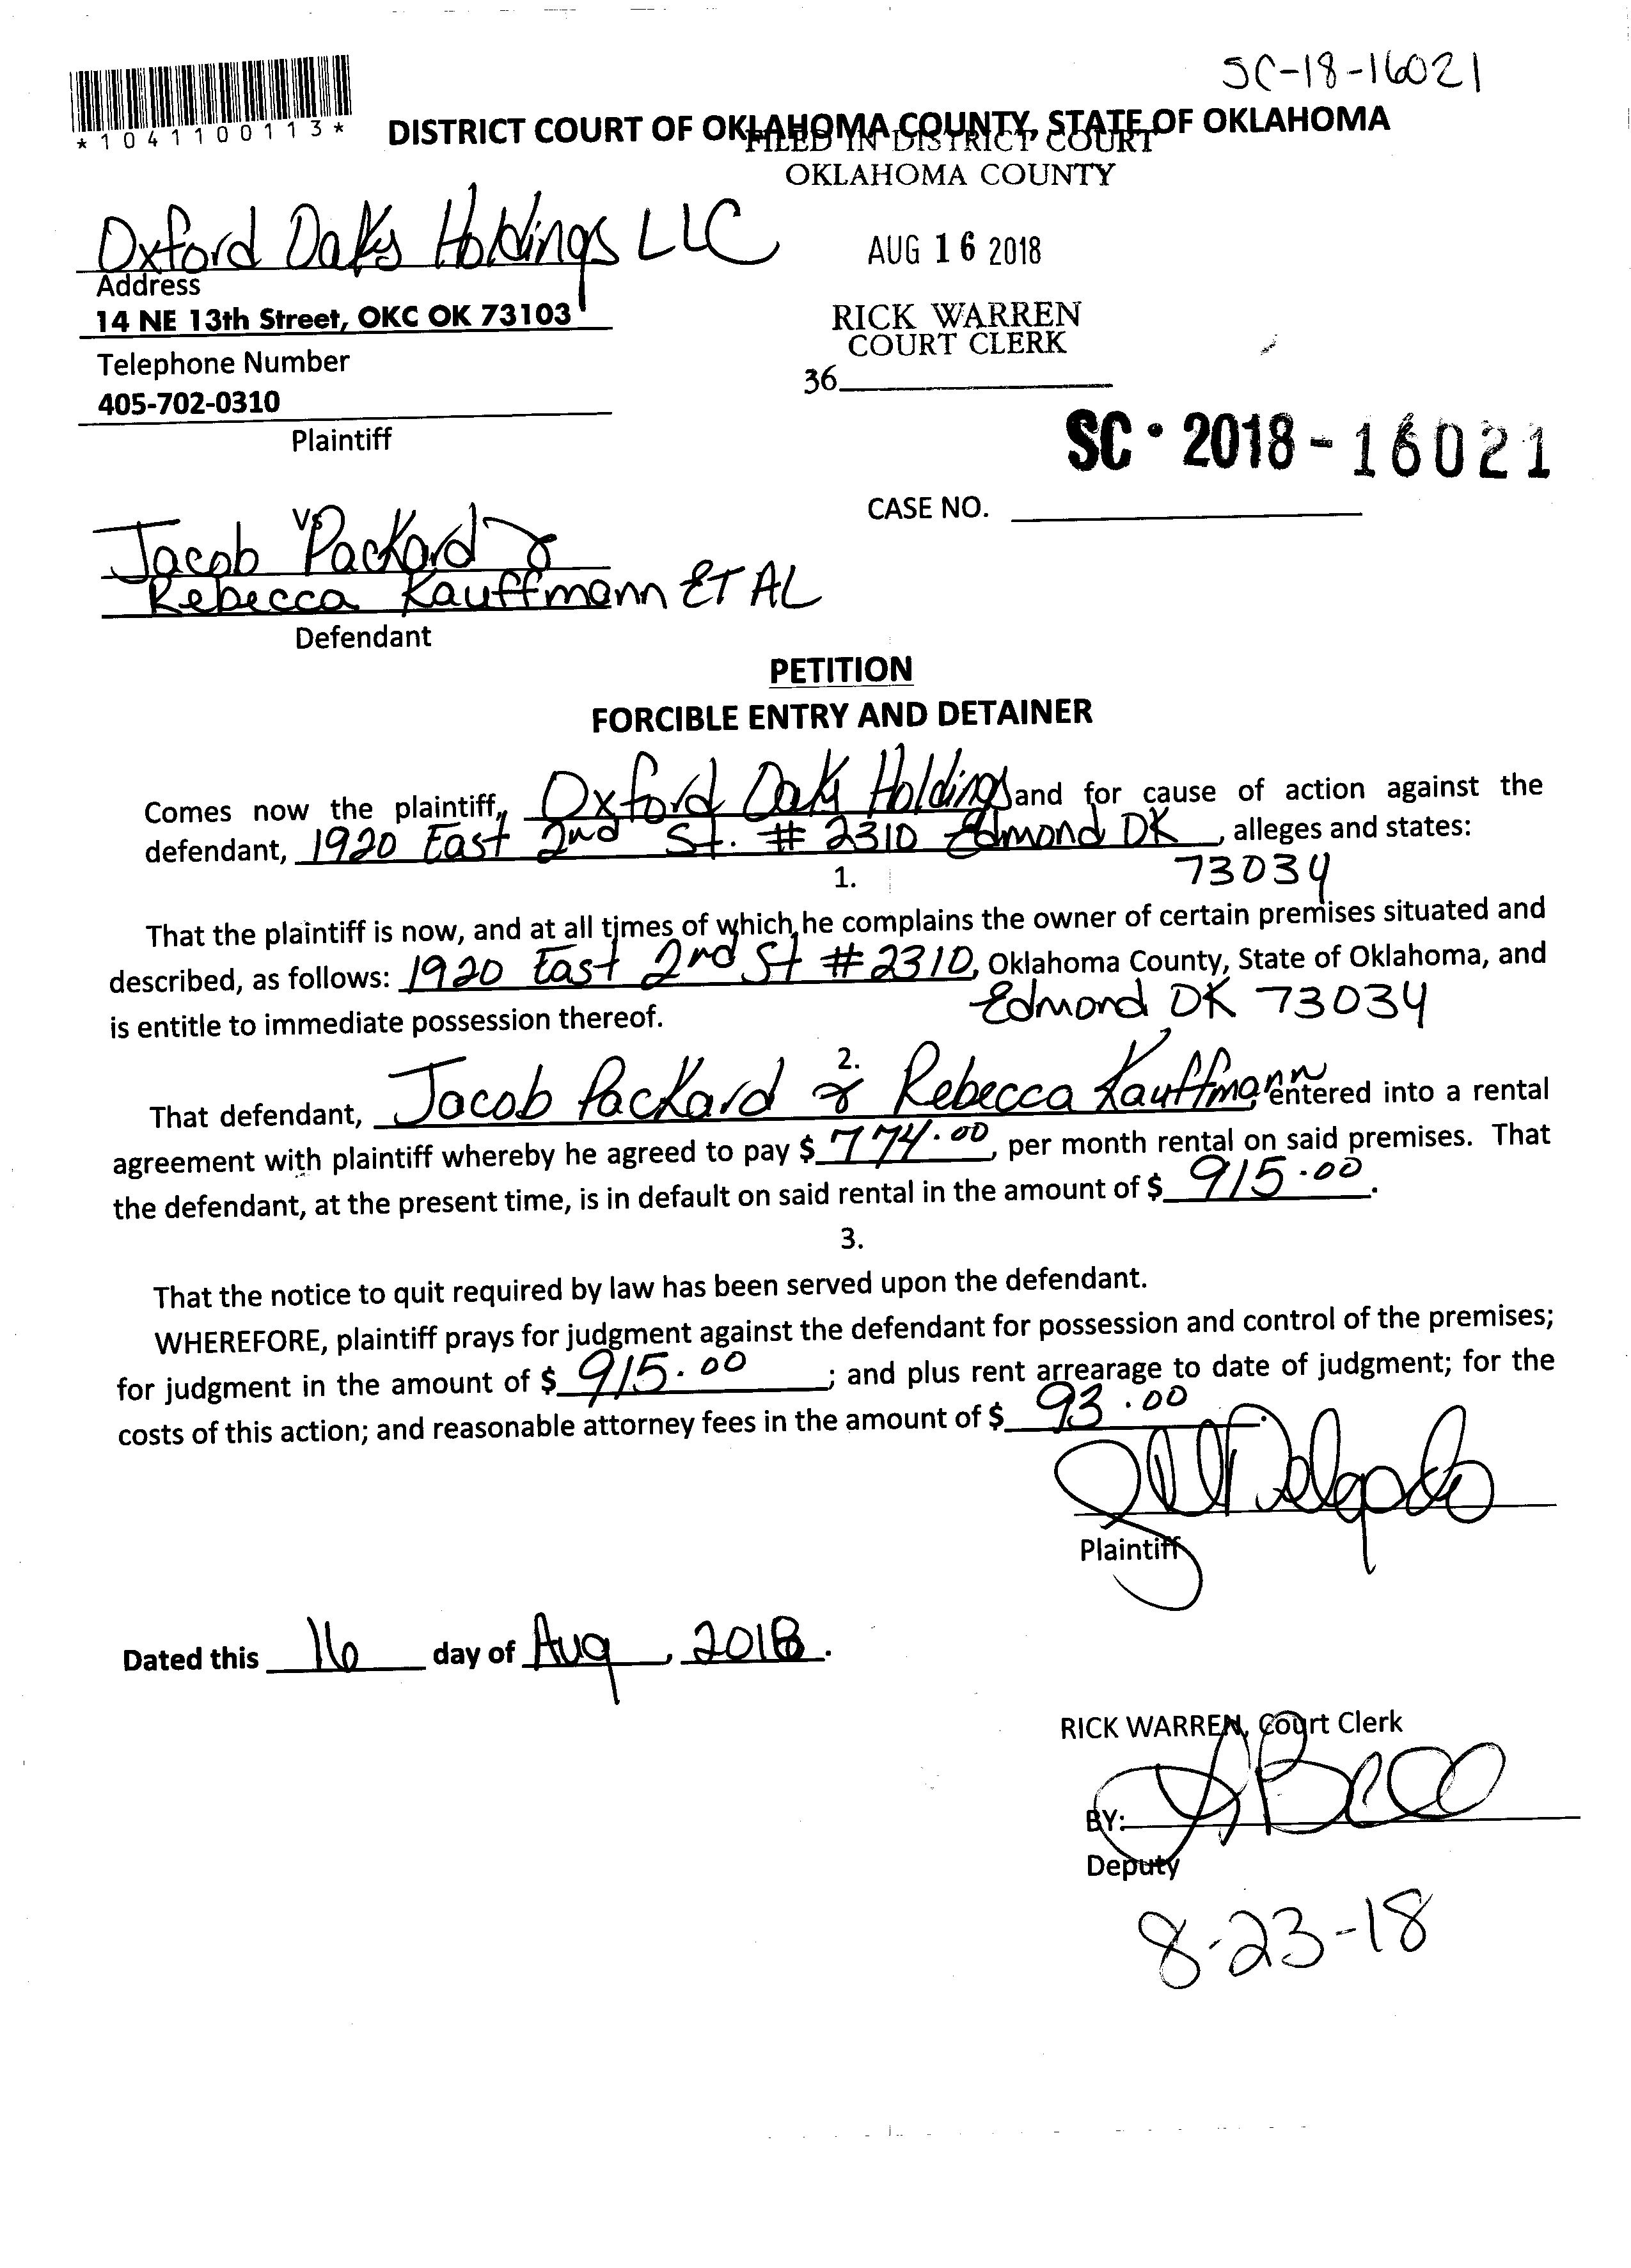 SC-18-16021
*1041100113*
DISTRICT COURT OF OKLAHOMA COUNTY, STATE OF OKLAHOMA
FILED IN DISTRICT COURT
OKLAHOMA COUNTY
Oxford Oaks Holdings LLC
AUG 16 2018
Address
14 NE 13th Street, OKC OK 73103
RICK WARREN
COURT CLERK
Telephone Number
36
405-702-0310
Plaintiff
SC • 2018 - 16021
CASE NO.
Vs
Jacob Packard &
Rebecca Kauffmann ET AL
Defendant
PETITION
FORCIBLE ENTRY AND DETAINER
Comes now the plaintiff, Oxford Oaks Holdings and for cause of action against the
defendant, 1920 East 2nd St. # 2310 Edmond OK, alleges and states:
73034
1.
That the plaintiff is now, and at all times of which he complains the owner of certain premises situated and
described, as follows: 1920 East 2nd St # 2310, Oklahoma County, State of Oklahoma, and
Edmond OK 73034
is entitle to immediate possession thereof.
2.
That defendant, Jacob Packard & Rebecca Kauffmann entered into a rental
agreement with plaintiff whereby he agreed to pay $ 774.00, per month rental on said premises. That
the defendant, at the present time, is in default on said rental in the amount of $ 915.00.
3.
That the notice to quit required by law has been served upon the defendant.
WHEREFORE, plaintiff prays for judgment against the defendant for possession and control of the premises;
for judgment in the amount of $ 915.00; and plus rent arrearage to date of judgment; for the
costs of this action; and reasonable attorney fees in the amount of $ 93.00.
Delgado
Plaintiff
Dated this 16 day of Aug, 2018.
RICK WARREN, Court Clerk
BY:
Deputy
8-23-18